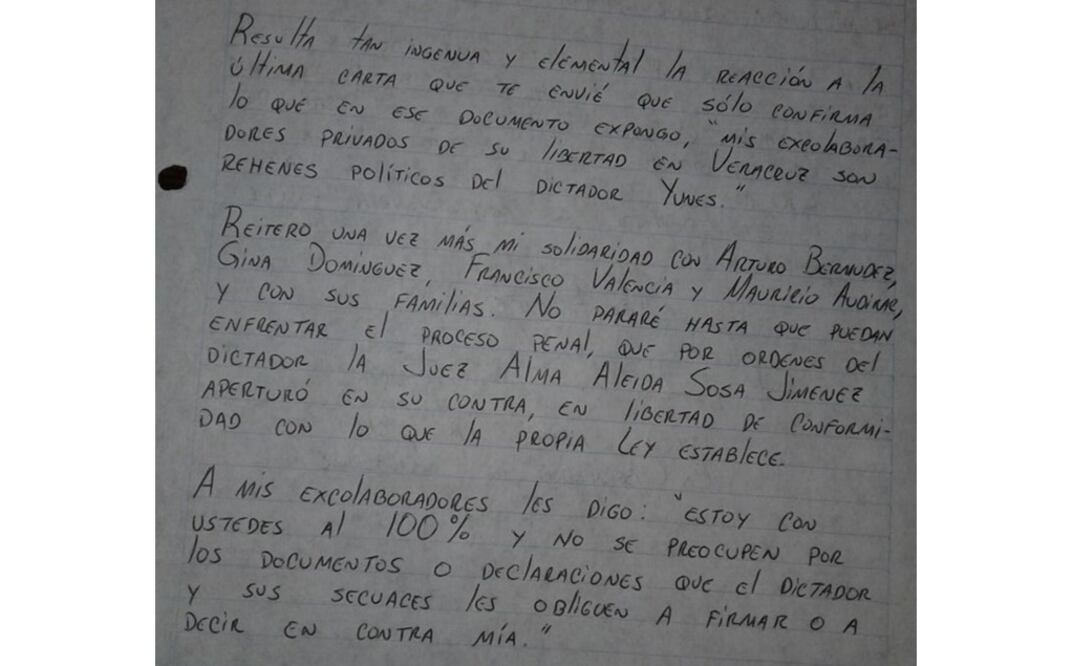 Resulta tan ingenua y elemental la reacción a la
última carta que te envié que sólo confirma
lo que en ese documento expongo, "mis excolabora-
dores privados de su libertad en Veracruz son
rehenes políticos del dictador Yunes."
Reitero una vez más mi solidaridad con Arturo Bermudez,
Gina Domínguez, Francisco Valencia y Mauricio Audirac,
y con sus familias. No pararé hasta que puedan
enfrentar el proceso penal, que por ordenes del
dictador la Juez Alma Aleida Sosa Jimenez
aperturó en su contra, en libertad de conformi-
dad con lo que la propia Ley establece.
A mis excolaboradores les digo: "Estoy con
ustedes al 100% y no se preocupen por
los documentos o declaraciones que el dictador
y sus secuaces les obliguen a firmar o a
decir en contra mía."